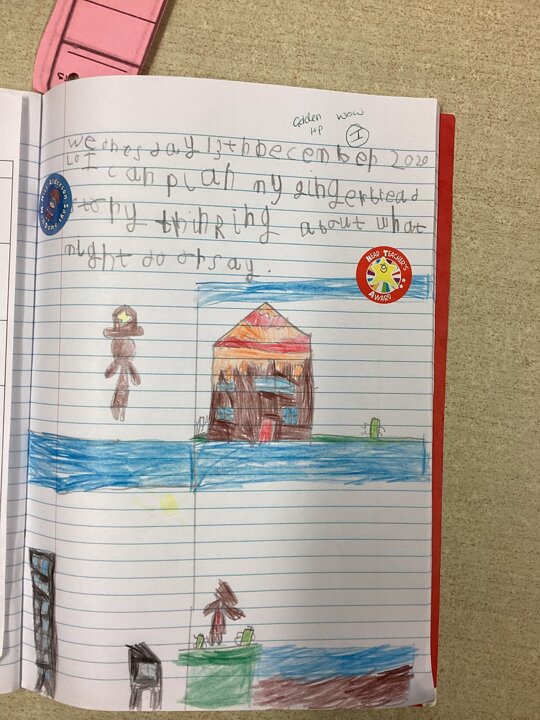 Golden wow
HP I
Wednesday 13th December 2020
LO I can plan my gingerbread
story thinking about what
might do or say.
HEAD TEACHER'S
AWARD